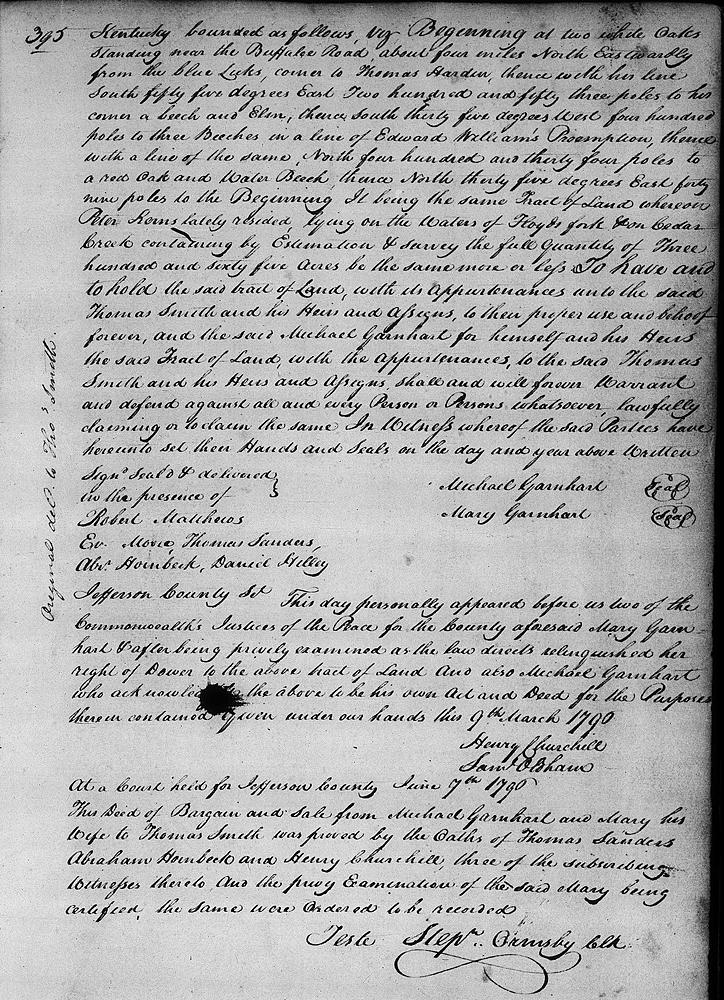 395
Kentucky bounded as follows, viz Beginning at two white Oaks
standing near the Buffaloe Road, about four miles North Eastwardly
from the blue Licks, corner to Thomas Harden, thence with his line
South fifty five degrees East Two hundred and fifty three poles to his
corner a beech and Elm, thence South thirty five degrees West four hundred
poles to three Beeches in a line of Edward William's Preemption, thence
with a line of the same, North four hundred and thirty four poles to
a red Oak and Water Beech, thence North thirty five degrees East forty
nine poles to the Beginning It being the same Tract of Land whereon
Peter Kerns lately resided, lying on the Waters of Floyds fork & on Cedar
Creek containing by Estimation & survey the full Quantity of Three
hundred and sixty five Acres be the same more or less To have and
to hold the said tract of Land, with its Appurtenances unto the said
Thomas Smith and his Heirs and Assigns, to their proper use and behoof
forever, and the said Michael Garnhart for himself and his Heirs
the said Tract of Land, with the Appurtenances, to the said Thomas
Smith and his Heirs and Assigns, shall and will forever Warrant
and defend against all and every Person or Persons whatsoever, lawfully
claiming or to claim the same In Witness whereof the said Parties have
hereunto set their Hands and Seals on the day and year above Written
Sign'd Seal'd & delivered
in the presence of
Michael Garnhart Seal
Robert Matthews
Mary Garnhart Seal
Ev. Moore, Thomas Sanders,
Abm Hornbeck, Daniel Hilley
Original del'd. to Thos Smith.
Jefferson County Sct This day personally appeared before us two of the
Commonwealth's Justices of the Peace for the County aforesaid Mary Garn-
hart & after being privily examined as the law directs relinquished her
right of Dower to the above tract of Land And also Michael Garnhart
who acknowled the above to be his own Act and Deed for the Purposes
therein contained Given under our hands this 9th March 1790
Henry Churchill
Saml Oldham
At a Court held for Jefferson County June 7th 1790
This Deed of Bargain and Sale from Michael Garnhart and Mary his
Wife to Thomas Smith was proved by the Oaths of Thomas Sanders
Abraham Hornbeck and Henry Churchill, three of the subscribing
Witnesses thereto And the privy Examination of the said Mary being
certified, the same were Ordered to be recorded
Teste Stepn. Ormsby Clk